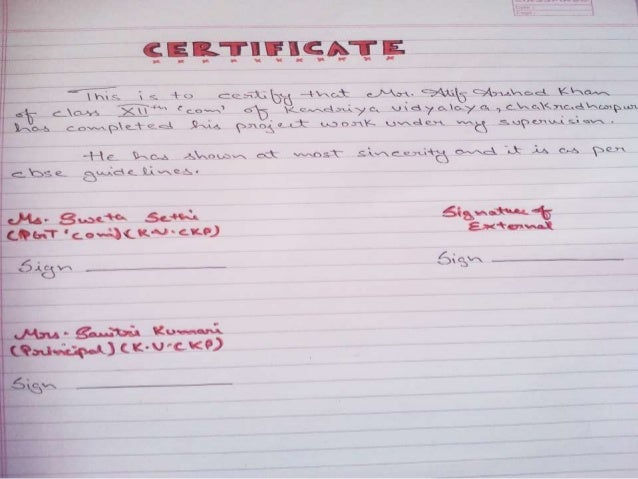 CERTIFICATE
This is to certify that Mr. Atif Arshad Khan
of class XIIth 'com' of Kendriya vidyalaya, chakradharpur
has completed his project work under my supervision.
He has shown at most sincerity and it is as per
cbse guide lines.
Ms. Sweta Sethi
(PGT 'com) (K.V. CKP)
Sign
Signature of
External
Sign
Mrs. Savitri Kumari
(Principal) (K.V. CKP)
Sign